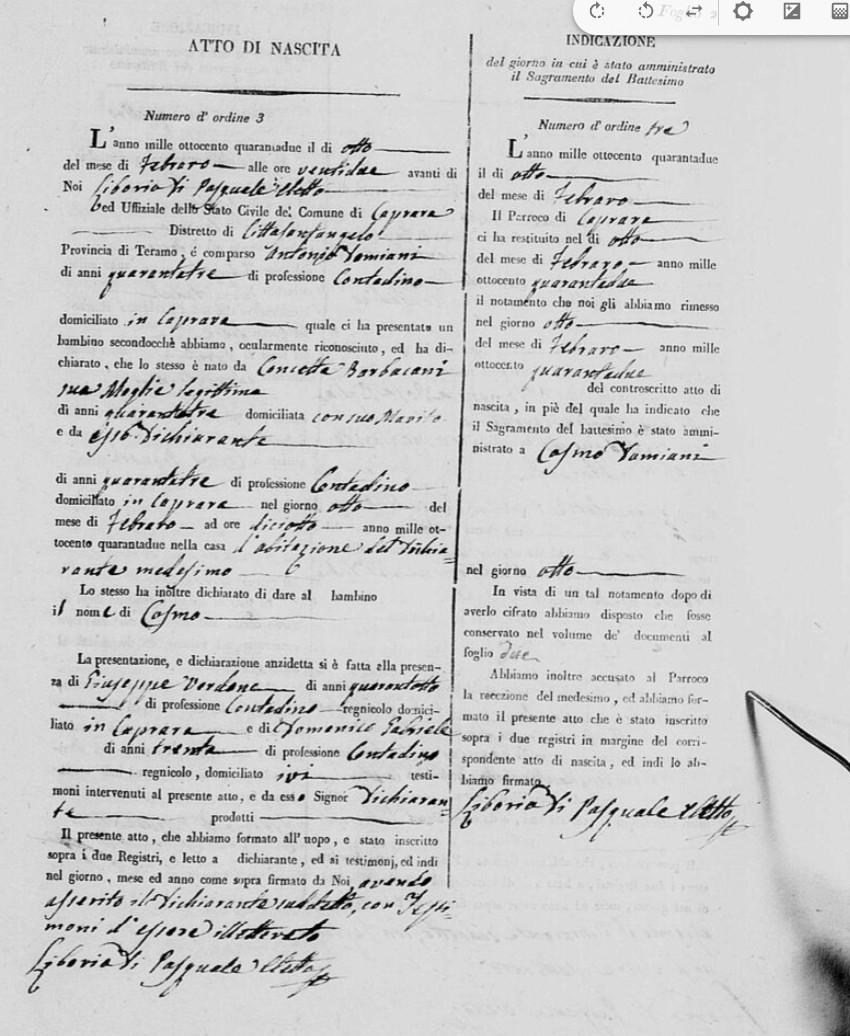 ATTO DI NASCITA
Numero d' ordine 3
L'anno mille ottocento quarantadue il di otto
del mese di Febraro alle ore ventidue avanti di
Noi Liborio di Pasquale Eletto
ed Uffiziale dello Stato Civile de' Comune di Caprara
Distretto di Cittasantangelo
Provincia di Teramo, é comparso Antonio Damiani
di anni quarantatre di professione Contadino
domiciliato in Caprara quale ci ha presentato un
bambino secondocchè abbiamo, ocularmente riconosciuto, ed ha di-
chiarato, che lo stesso è nato da Concetta Barbacani
sua Moglie legittima
di anni quarantatre domiciliata con suo Marito
e da esso Dichiarante
di anni quarantatre di professione Contadino
domiciliato in Caprara nel giorno otto del
mese di Febraro ad ore diciotto anno mille ot-
tocento quarantadue nella casa d'abitazione del Dichia=
rante medesimo
Lo stesso ha inoltre dichiarato di dare al bambino
il nome di Cosmo
La presentazione, e dichiarazione anzidetta si è fatta alla presen-
za di Giuseppe Verdone di anni quarantotto
di professione Contadino regnicolo domici-
liato in Caprara e di Domenico Gabriele
di anni trenta di professione Contadino
regnicolo, domiciliato ivi testi-
moni intervenuti al presente atto, e da esso Signor Dichiaran=
te prodotti
Il presente atto, che abbiamo formato all'uopo, e stato inscritto
sopra i due Registri, e letto a dichiarante, ed ai testimonj, ed indi
nel giorno, mese ed anno come sopra firmato da Noi, avendo
asserito il Dichiarante suddetto, con Testi-
moni d'essere illetterato
Liborio di Pasquale Eletto
Foglio 2
INDICAZIONE
del giorno in cui è stato amministrato
il Sagramento del Battesimo
Numero d' ordine tre
L'anno mille ottocento quarantadue
il di otto
del mese di Febraro
Il Parroco di Caprara
ci ha restituito nel di otto
del mese di Febraro anno mille
ottocento quarantadue
il notamento che noi gli abbiamo rimesso
nel giorno otto
del mese di Febraro anno mille
ottocento quarantadue
del controscritto atto di
nascita, in piè del quale ha indicato che
il Sagramento del battesimo è stato ammi-
nistrato a Cosmo Damiani
nel giorno otto
In vista di un tal notamento dopo di
averlo cifrato abbiamo disposto che fosse
conservato nel volume de' documenti al
foglio due
Abbiamo inoltre accusato al Parroco
la recezione del medesimo, ed abbiamo for-
mato il presente atto che è stato inscritto
sopra i due registri in margine del corri-
spondente atto di nascita, ed indi lo ab-
biamo firmato
Liborio di Pasquale Eletto